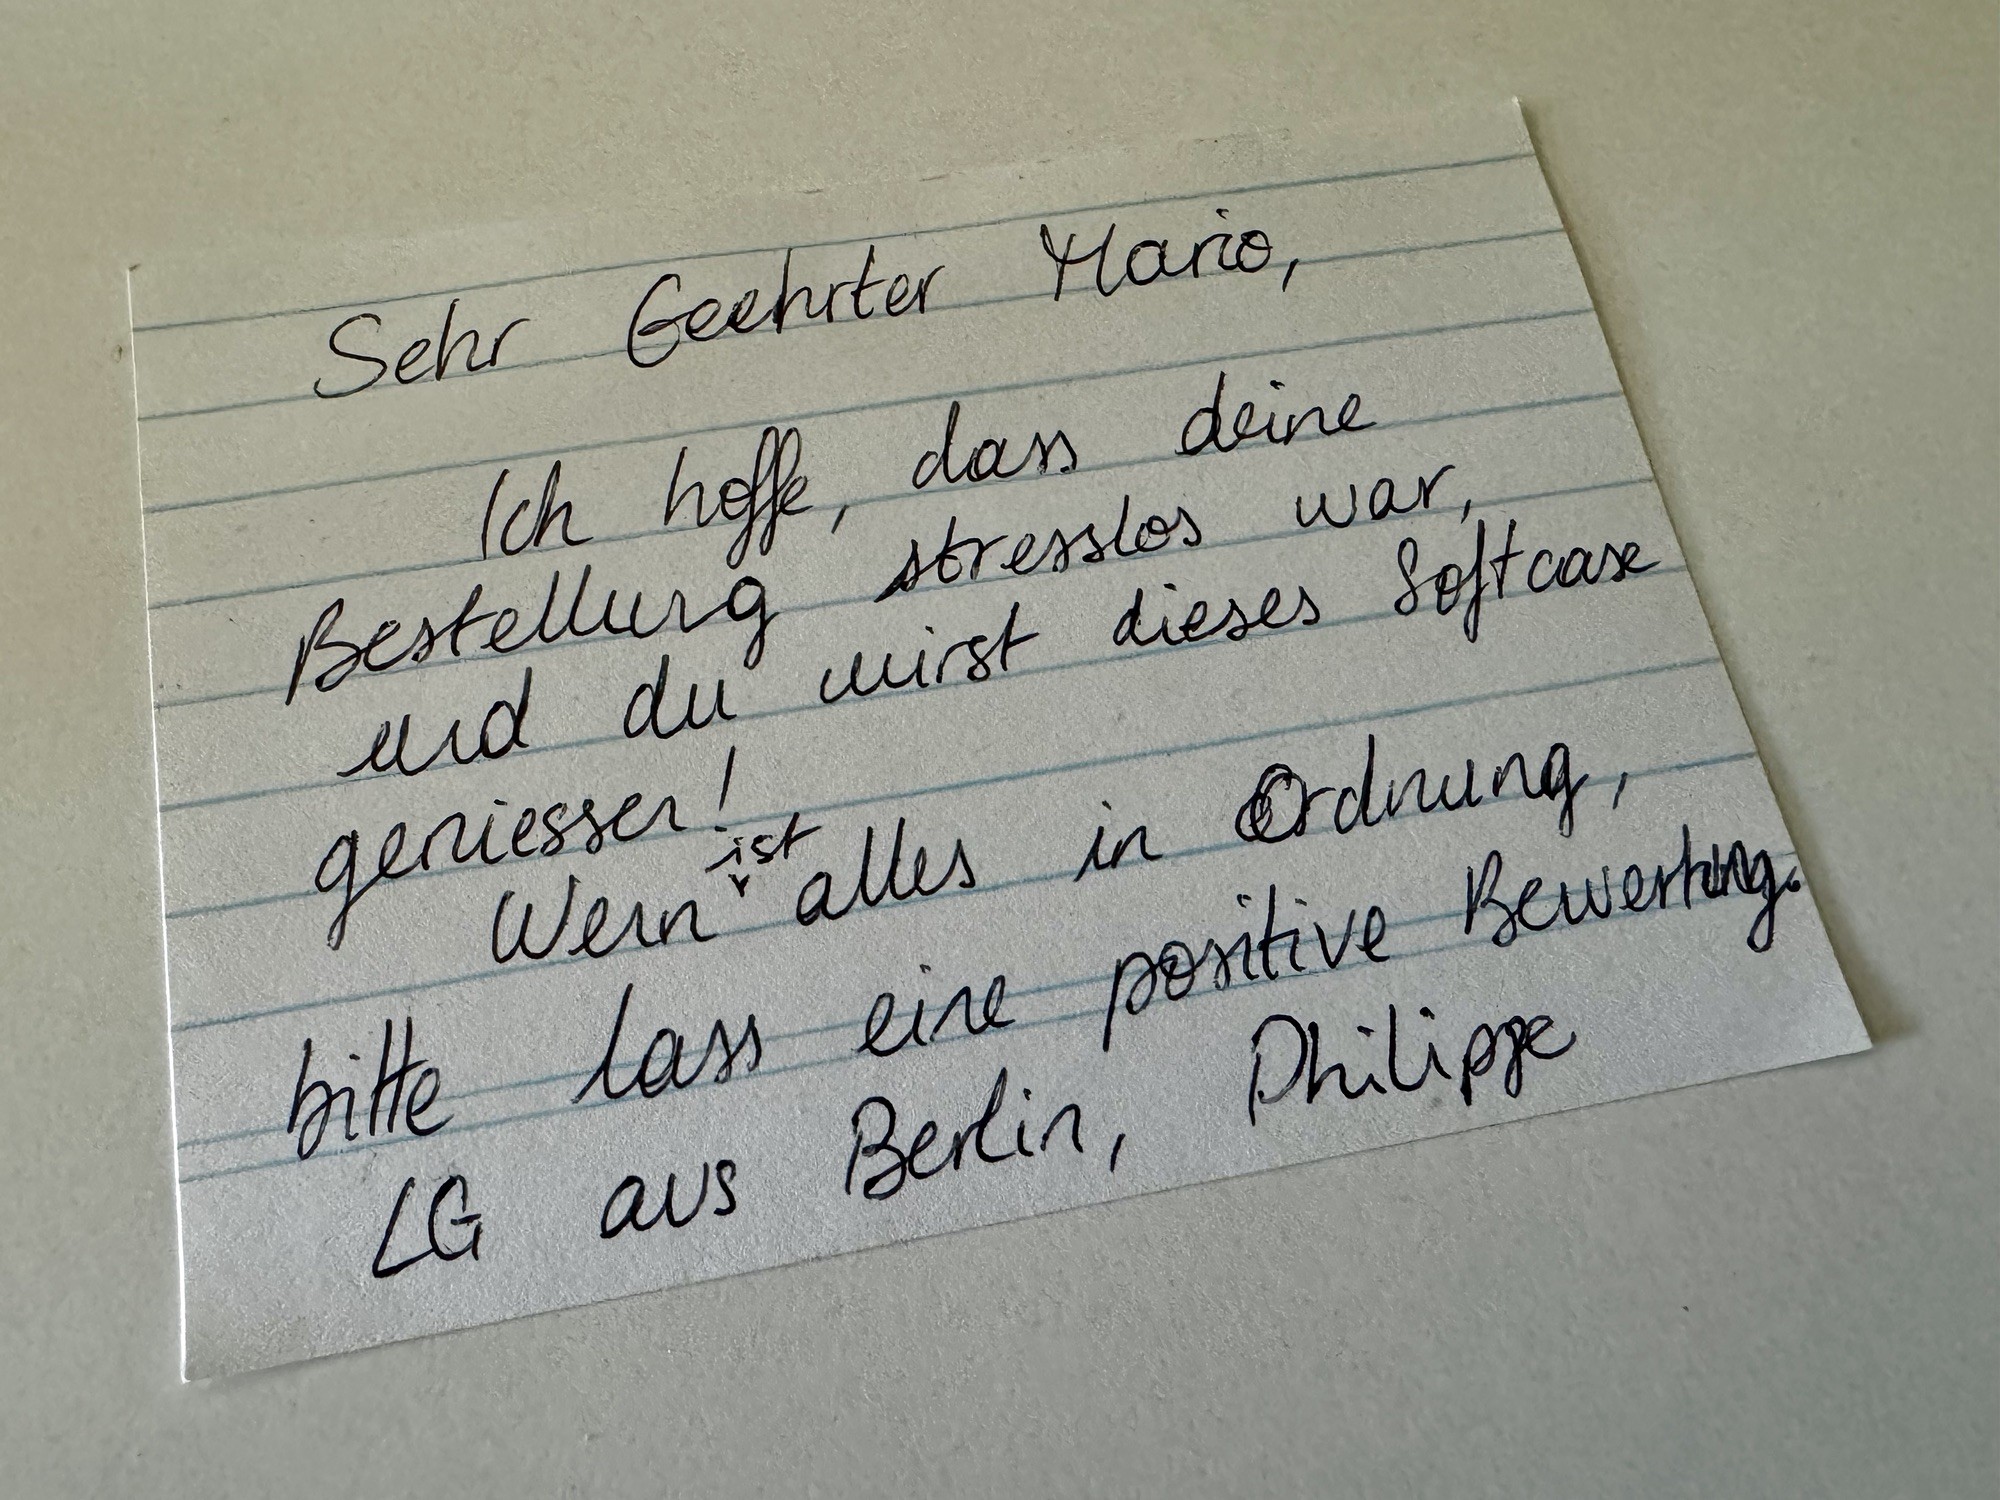 Sehr Geehrter Mario,
Ich hoffe, dass deine
Bestellung stresslos war,
und du wirst dieses Softcase
geniessen!
Wenn ist alles in Ordnung,
bitte lass eine positive Bewertung.
LG aus Berlin, Philippe